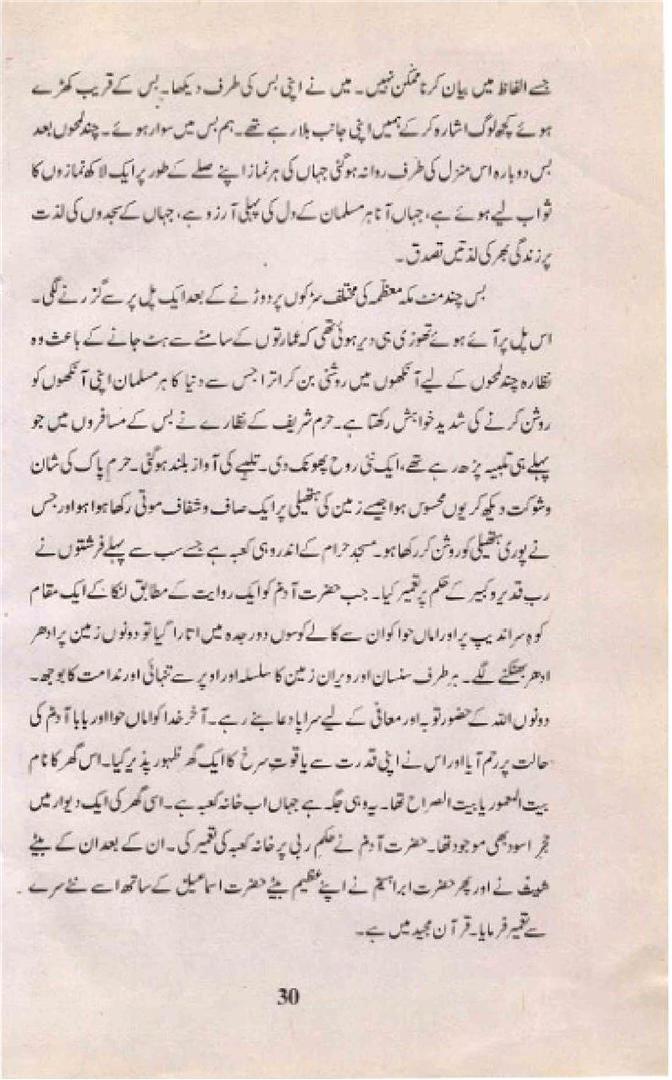 جسے الفاظ میں بیان کرنا ممکن نہیں۔ میں نے اپنی بس کی طرف دیکھا۔ بس کے قریب کھڑے
ہوئے کچھ لوگ اشارہ کر کے ہمیں اپنی جانب بلا رہے تھے۔ ہم بس میں سوار ہوئے۔ چند لمحوں بعد
بس دوبارہ اس منزل کی طرف روانہ ہوگئی جہاں کی ہر نماز اپنے صلے کے طور پر ایک لاکھ نمازوں کا
ثواب لیے ہوئے ہے، جہاں آنا ہر مسلمان کے دل کی پہلی آرزو ہے، جہاں کے سجدوں کی لذت
پر زندگی بھر کی لذتیں تصدق۔
بس چند منٹ مکہ معظمہ کی مختلف سڑکوں پر دوڑنے کے بعد ایک پل پر سے گزرنے لگی۔
اس پل پر آئے ہوئے تھوڑی ہی دیر ہوئی تھی کہ عمارتوں کے سامنے سے ہٹ جانے کے باعث وہ
نظارہ چند لمحوں کے لیے آنکھوں میں روشنی بن کر اترا جس سے دنیا کا ہر مسلمان اپنی آنکھوں کو
روشن کرنے کی شدید خواہش رکھتا ہے۔ حرم شریف کے نظارے نے بس کے مسافروں میں جو
پہلے ہی تلبیہ پڑھ رہے تھے، ایک نئی روح پھونک دی۔ تلبیے کی آواز بلند ہوگئی۔ حرم پاک کی شان
و شوکت دیکھ کر یوں محسوس ہوا جیسے زمین کی ہتھیلی پر ایک صاف و شفاف موتی رکھا ہوا ہو اور جس
نے پوری ہتھیلی کو روشن کر رکھا ہو۔ مسجد حرام کے اندر وہی کعبہ ہے جسے سب سے پہلے فرشتوں نے
رب قدیر و کبیر کے حکم پر تعمیر کیا۔ جب حضرت آدمؑ کو ایک روایت کے مطابق لنکا کے ایک مقام
کوہِ سراندیپ پر اور اماں حوا کو ان سے کالے کوسوں دور جدہ میں اتارا گیا تو دونوں زمین پر ادھر
ادھر بھٹکنے لگے۔ ہر طرف سنسان اور ویران زمین کا سلسلہ اور اوپر سے تنہائی اور ندامت کا بوجھ۔
دونوں اللہ کے حضور توبہ اور معافی کے لیے سراپا دعا بنے رہے۔ آخر خدا کو اماں حوا اور بابا آدمؑ کی
حالت پر رحم آیا اور اس نے اپنی قدرت سے یاقوتِ سرخ کا ایک گھر ظہور پذیر کیا۔ اس گھر کا نام
بیت المعمور یا بیت الصراح تھا۔ یہ وہی جگہ ہے جہاں اب خانہ کعبہ ہے۔ اسی گھر کی ایک دیوار میں
حجرِ اسود بھی موجود تھا۔ حضرت آدمؑ نے حکمِ ربی پر خانہ کعبہ کی تعمیر کی۔ ان کے بعد ان کے بیٹے
شیثؑ نے اور پھر حضرت ابراہیمؑ نے اپنے عظیم بیٹے حضرت اسماعیلؑ کے ساتھ اسے نئے سرے
سے تعمیر فرمایا۔ قرآن مجید میں ہے۔
30